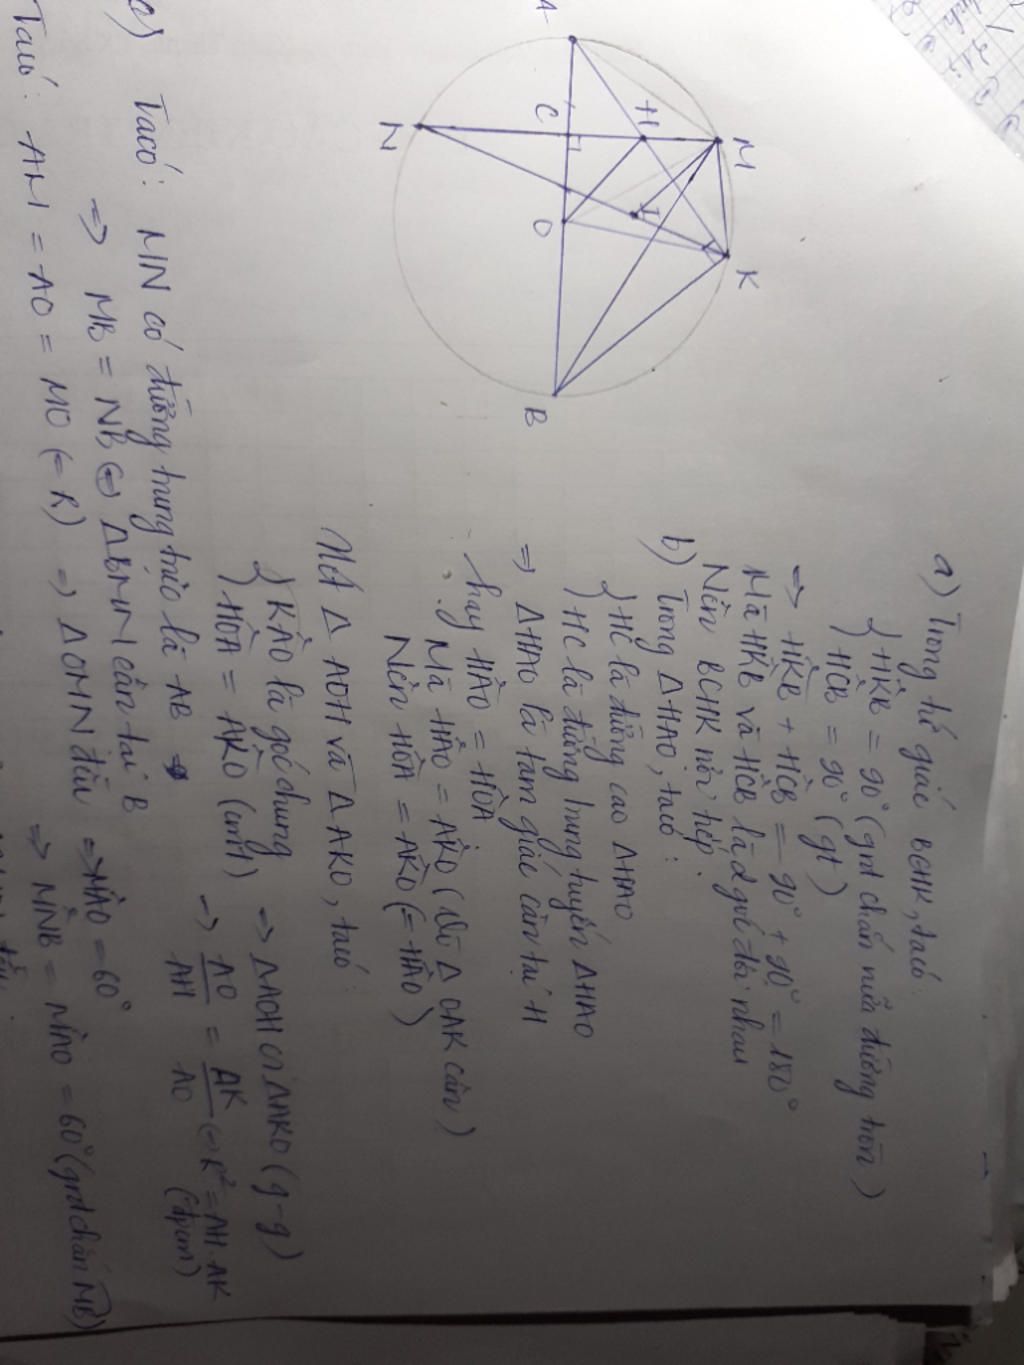 A
C
H
M
N
I
O
K
B
a) Trong tứ giác BCHK, ta có:
{ HK̂B = 90° (gnt chắn nửa đường tròn)
HĈB = 90° (gt)
=> HK̂B + HĈB = 90° + 90° = 180°
Mà HK̂B và HĈB là 2 góc đối nhau
Nên BCHK nội tiếp.
b) Trong ΔHAO, ta có:
{ HC là đường cao ΔHAO
HC là đường trung tuyến ΔHAO
=> ΔHAO là tam giác cân tại H
hay HÂO = HÔA
Mà HÂO = AK̂O (vì ΔOAK cân)
Nên HÔA = AK̂O (= HÂO)
Xét Δ AOH và Δ AKO, ta có:
{ KÂO là góc chung
HÔA = AK̂O (cmt)
=> ΔAOH ∽ ΔAKO (g-g)
=> AO/AH = AK/AO <=> R² = AH.AK
(đpcm)
c) Ta có: MN có đường trung trực là AB
=> MB = NB <=> ΔBMN cân tại B
Ta có: AM = AO = MO (= R) => ΔOMN đều => MÂO = 60°
=> MN̂B = MÂO = 60° (gnt chắn MB)